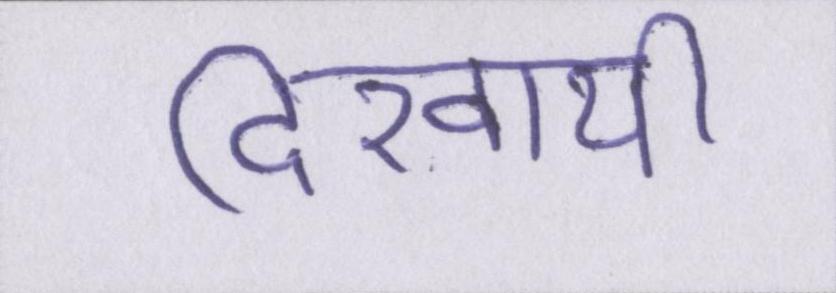 दिखायी